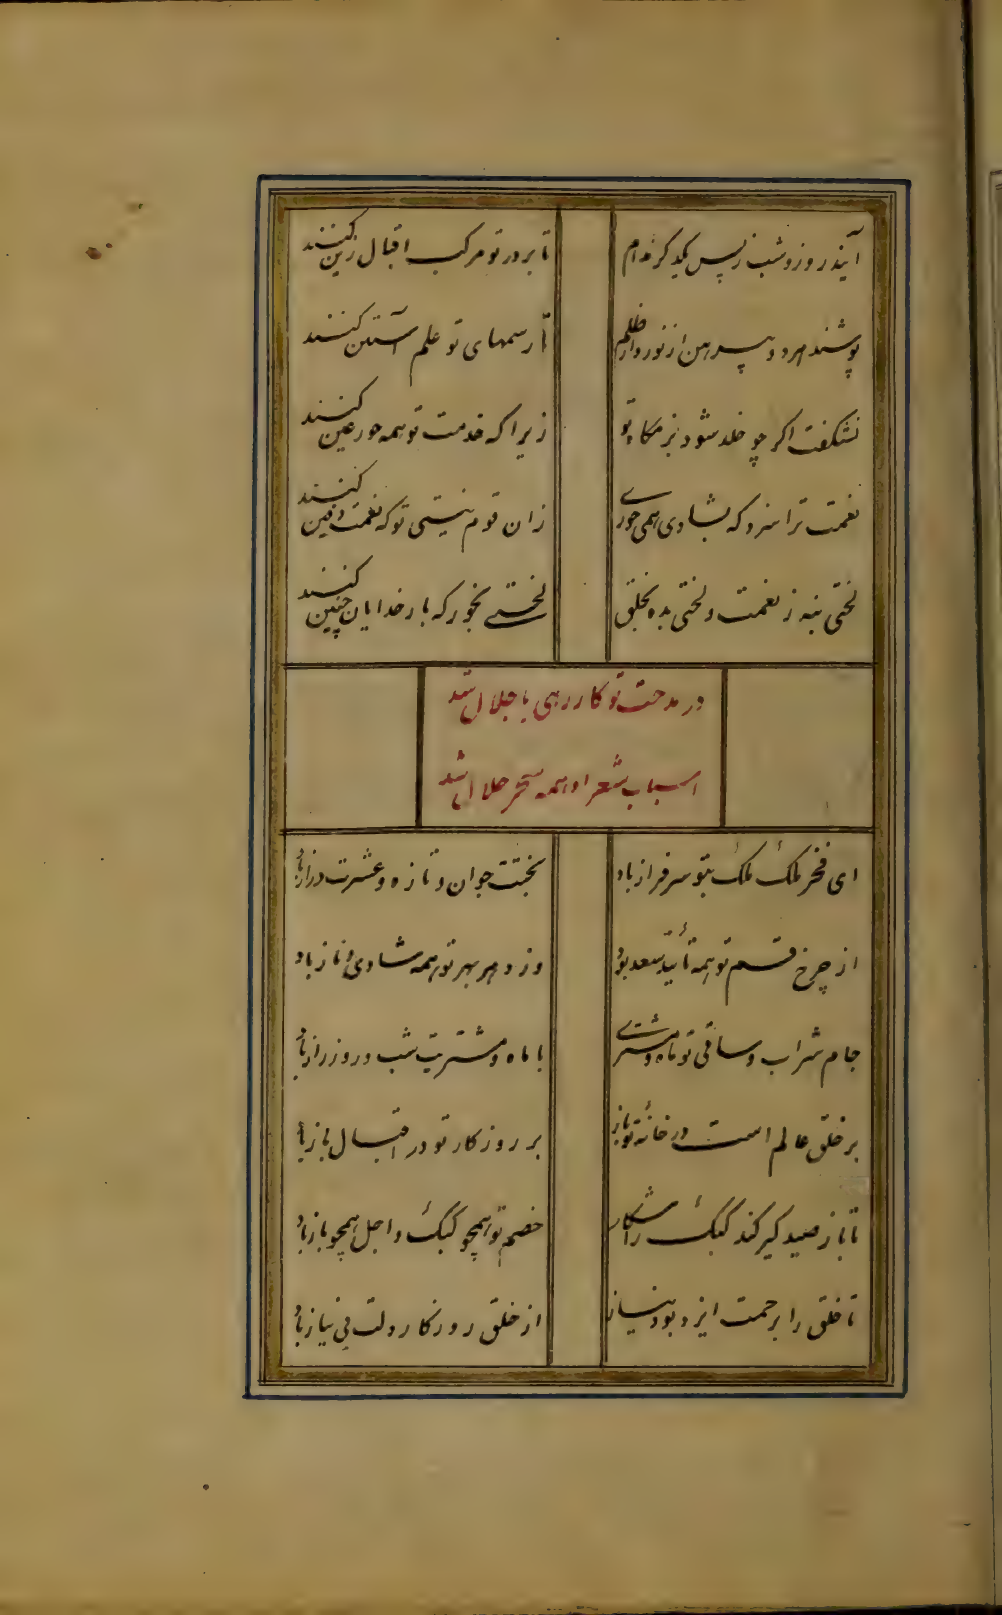 آیند روز و شب ز پس یکدیگر مدام
تا بر در تو مرکب اقبال زین کنند
پوشند هر دو پیرهن از نور و از ظلم
تا رسمهای تو علم آستین کنند
نشکفت اگر چو خلد شود بزمگاه تو
زیرا که خدمت تو همه حور عین کنند
نعمت ترا سزد که بشادی همی خوری
زان قوم نیستی تو که نعمت دفین کنند
لختی بنه ز نعمت و لختی بده بخلق
لختی بخور که بار خدایان چنین کنند
در مدحت تو کار رهی با جلال شد
اسباب شعر او همه سحر حلال شد
ای فخر ملک ملک بتو سرفراز باد
بختت جوان و تازه و عشرت دراز باد
از چرخ قسم تو همه تأیید سعد بود
وز دهر بهر تو همه شادی و ناز باد
جام شراب و ساقی تو ماه و مشتری
با ماه و مشتریت شب و روز راز باد
بر خلق عالم است در خانهٔ تو باز
بر روزگار تو در اقبال باز باد
تا باز صید گیر کند کبک را شکار
خصم تو همچو کبک و اجل همچو باز باد
تا خلق را برحمت ایزد بود نیاز
از خلق روزگار دلت بی نیاز باد